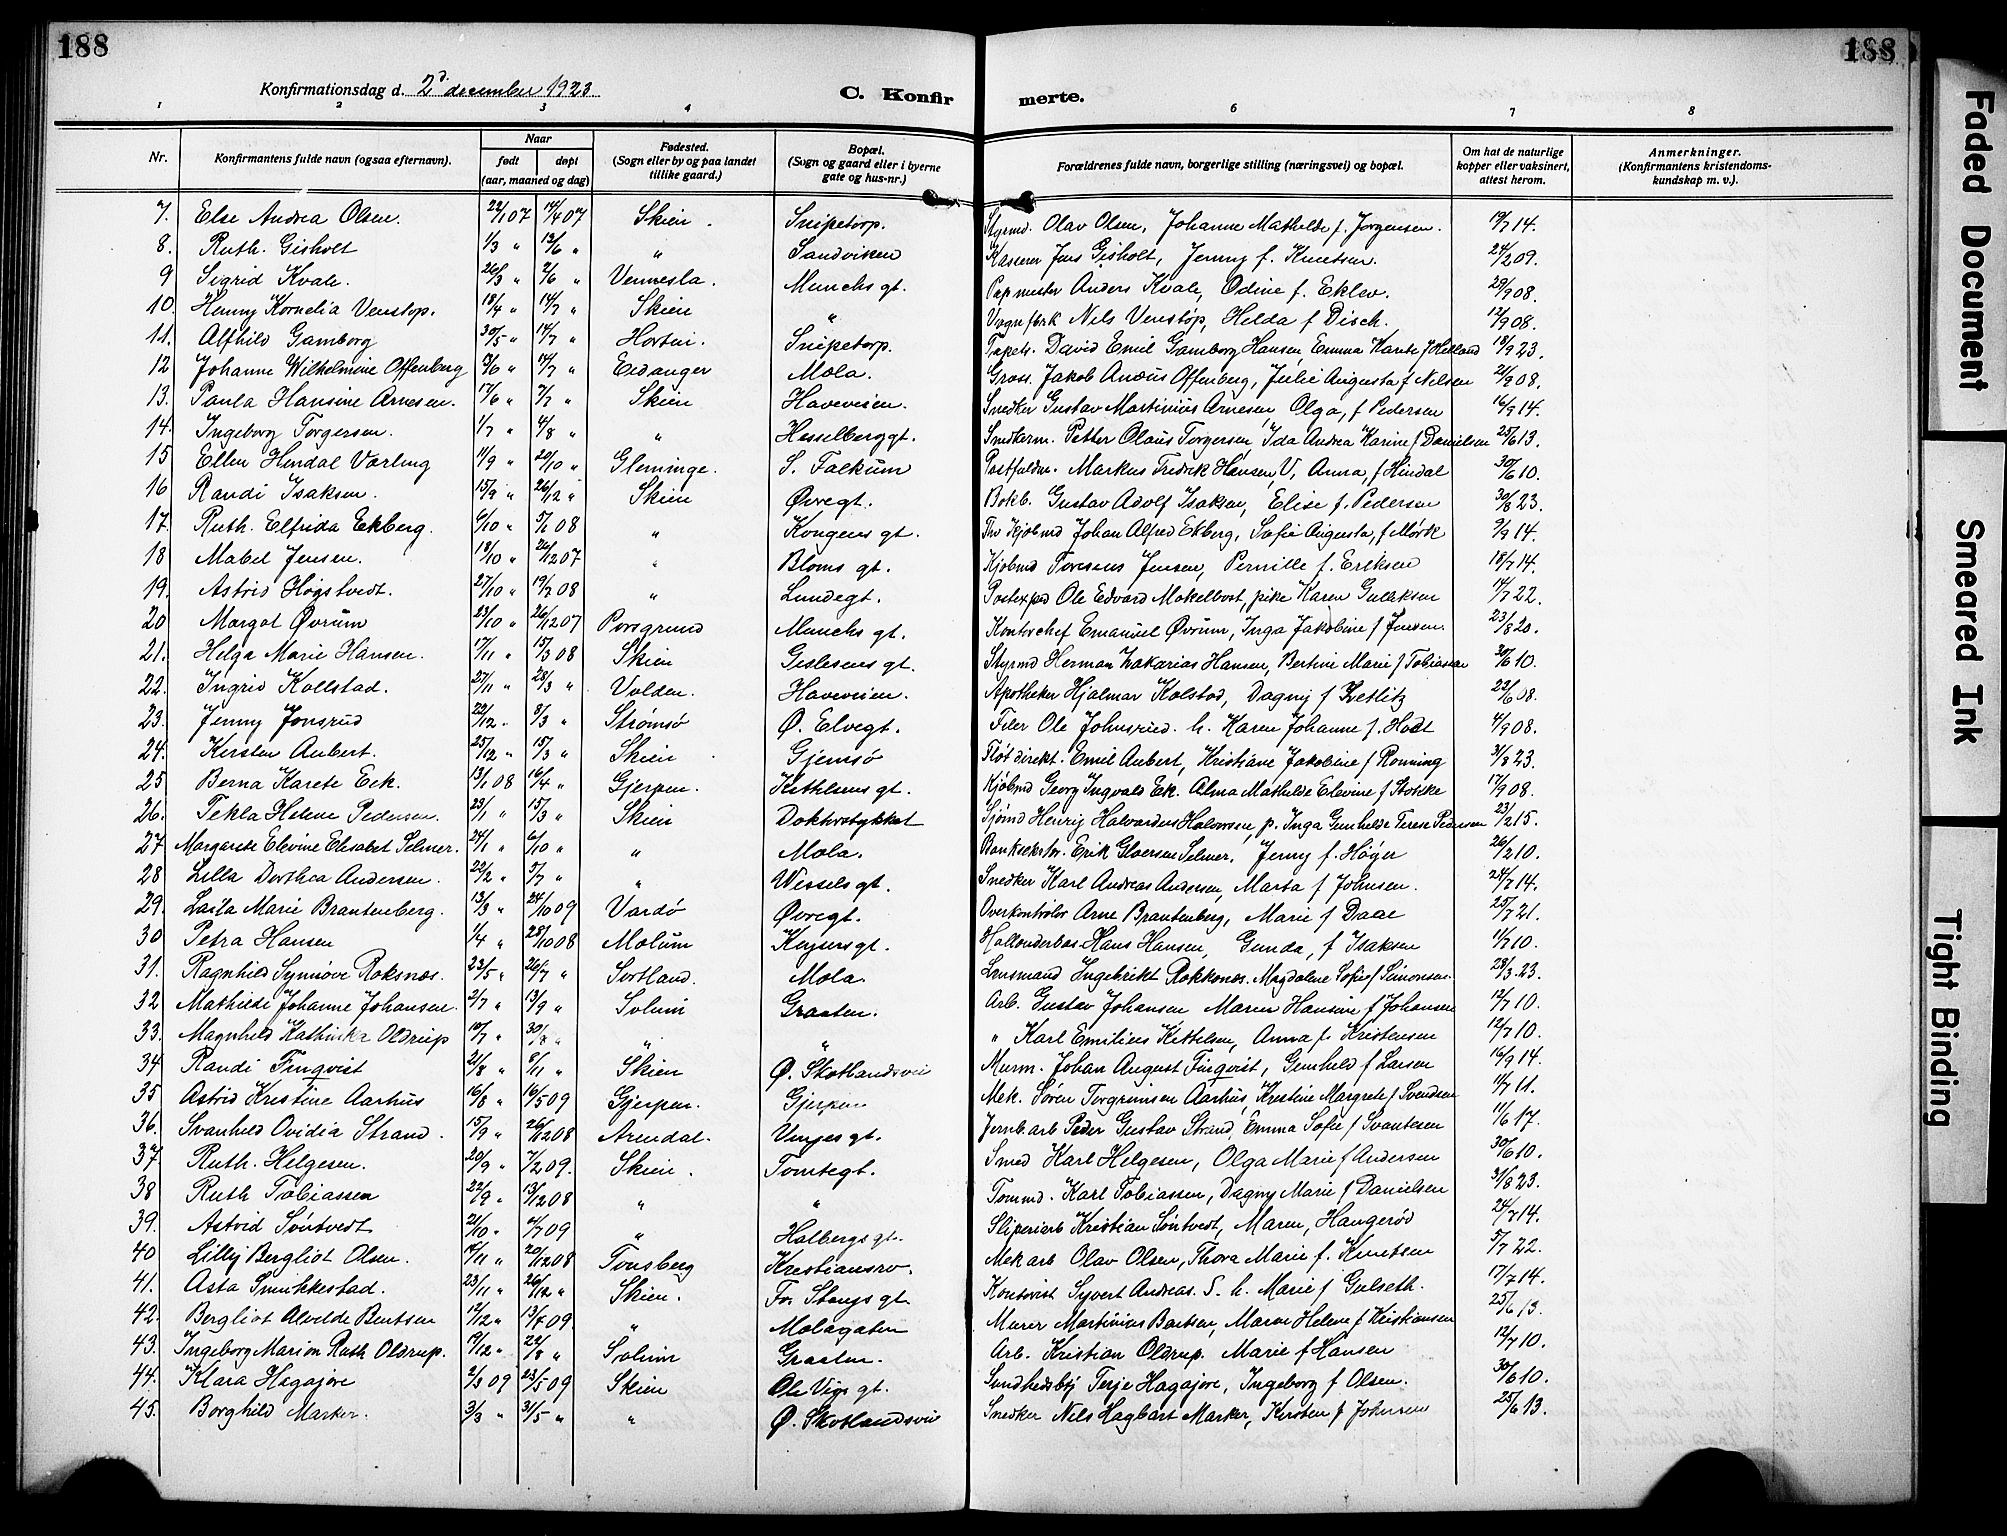 188
188
Konfirmationsdag d. 2d december 1923
C. Konfir merte.
1 2 3 4 6 7 8
Nr.
Konfirmantens fulde navn (ogsaa efternavn).
Naar
født døpt
(aar, maaned og dag)
Fødested.
(Sogn eller by og paa landet
tillike gaard.)
Bopæl.
(Sogn og gaard eller i byerne
gate og hus-nr.)
Forældrenes fulde navn, borgerlige stilling (næringsvei) og bopæl.
Om hat de naturlige
kopper eller vaksinert,
attest herom.
Anmerkninger.
(Konfirmantens kristendoms-
kundskap m. v.).
7. Else Andrea Olsen. 22/1 07 14/4 07 Skien. Snipetorp. Styrmd. Olav Olsen, Johanne Mathilde f. Jørgensen. 19/7 14.
8. Ruth Gisholt 1/3 " 13/6 " " Sandviken Kasserer Jens Gisholt, Jenny f. Knutsen. 24/2 09.
9 Sigrid Kvale. 26/3 " 2/6 " Vennesla. Munchs gt. Papmester Anders Kvale, Odine f. Eklev. 29/9 08.
10. Henny Kornelia Venstøp. 18/4 " 14/7 " Skien " Vognfbrk Nils Venstøp, Helda f Disch. 12/9 08.
11. Alfhild Gamborg 30/5 " 14/7 " Horten. Snipetorp. Tapets. David Emil Gamborg Hansen, Emma Karete f Helland 18/9 23.
12 Johanne Wilhelmine Offenberg 7/6 " 14/7 " Eidanger Mola. Gross. Jakob Anæus Offenberg, Julie Augusta f Nilsen 21/9 08.
13. Paula Hansine Arnesen. 17/6 " 7/7 " Skien Haveveien. Snedker Gustav Martinius Arnesen, Olga, f Pedersen 16/9 14.
14. Ingeborg Torgersen. 1/7 " 4/8 " " Hesselberggt. Smedkarm. Petter Olaus Torgersen, Ida Andrea Karine f Danielsen 25/6 13.
15 Ellen Hindal Værling 11/9 " 20/10 " Glemminge. S. Falkum Postfuldm. Markus Fredrik Hansen V, Anna, f Hindal 30/6 10.
16 Randi Isaksen. 15/9 " 26/12 " Skien Øvregt. Bokb. Gustav Adolf Isaksen, Elise f. Pedersen 30/8 23.
17. Ruth Elfrida Ekberg. 6/10 " 5/1 08 " Kongens gt. Kjøbmd Johan Alfred Ekberg, Sofie Augusta, f Mørk 9/9 14.
18 Mabel Jensen. 18/10 " 26/12 07 " Bloms gt. Kjøbmd Jensen, Pernille f. Eriksen 18/7 14.
19. Astrid Høgstvedt. 27/10 " 19/7 08 " Lundegt. Postexped Ole Edvard Mokelbost, pike Karen Gulliksen 14/7 22.
20 Margot Øvrum 23/10 " 26/12 07 Porsgrund Munchs gt. Kontorchef Emanuel Øvrum, Inga Jakobine f Jensen. 23/8 20.
21. Helga Marie Hansen. 17/11 " 15/3 08 Skien Gislesens gt. Styrmd Herman Zakarias Hansen, Bertine Marie f Tobiassen 30/6 10.
22. Ingrid Kollstad. 27/11 " 28/3 " Volden. Haveveien. Apotheker Hjalmar Kolstad, Dagny f Zetlitz 22/6 08.
23. Jenny Jonsrud 22/12 " 8/3 " Strømsø Ø. Elvegt. Filer Ole Johnsrud. h. Karen Johanne f. Holt 4/9 08.
24. Kirsten Aubert. 25/12 " 15/3 " Skien Gjemsø Fløt direkt. Emil Aubert, Kristiane Jakobine f Rønning 31/8 23.
25 Berna Karete Eek. 13/1 08 16/4 " Gjerpen. Kittilsens gt. Kjøbmd Georg Ingvald Ek. Alma Mathilde Elevine f Stoltke 17/9 08.
26. Tekla Helene Pedersen. 23/1 " 15/3 " Skien Doktorstykket Sjømd Henrig Halvardsen Halvorsen, p. Inga Gunhilde Terese Pedersen 23/2 15.
27 Margarete Elevine Elisabet Selmer. 24/1 " 6/10 " " Mola. Banksekrtr. Erik Gloersen Selmer, Jenny f. Höyer 26/2 10.
28 Lilla Dorthea Andersen. 22/2 " 5/7 " " Wessels gt. Snedker Karl Andreas Andersen, Marta f Johnsen. 24/7 14.
29. Laila Marie Brantenberg. 13/3 " 24/10 09 Vardø Øvregt. Overkontrolør Arne Brantenberg, Marie f Daae 25/7 21.
30 Petra Hansen 1/4 " 28/10 08 Molum Keysers gt. Hollenderbas. Hans Hansen, Gunda, f Isaksen 11/7 10.
31. Ragnhild Synnøve Roksnæs. 23/5 " 26/7 " Sortland. Mola Lensmand Ingebrikt Rokkones. Magdalene Sofie f Simonsen. 28/3 23.
32 Mathilde Johanne Johansen. 2/7 " 13/9 " Solum Graaten. Arb. Gustav Johansen Maren Hansine f Johansen 12/7 10.
33. Magnhild Kathinka Oldrup 10/7 " 30/8 " " " " Karl Emilius Kittelsen, Anna f. Kristensen 12/7 10.
34 Randi Finqvist 21/8 " 8/11 " Skien Ø. Skotlandsvei Murm. Johan August Finqvist, Gunhild f Larsen 16/9 14.
35 Astrid Kristine Aarhus 16/8 " 16/5 09 Gjerpen. Gjerpen Mek. Søren Torgrimsen Aarhus, Kristine Margrete f Svendsen 11/7 11.
36. Svanhild Ovidia Strand. 15/9 " 26/12 08 Arendal. Vinjes gt. Jernb. arb Peder Gustav Strand, Emma Sofie f Svantesen 11/6 17.
37. Ruth Helgesen. 20/9 " 7/2 09. Skien. Tomtegt. Smed Karl Helgesen, Olga Marie f Andersen 30/6 10.
38 Ruth Tobiassen 22/9 " 13/12 08 " " Tommd. Karl Tobiassen, Dagny Marie f Danielsen 31/8 23.
39. Astrid Sørtvedt 21/10 " 4/7 09 " Holbergs gt. Sliperiarb Kristian Sørtvedt, Maren, Haugerød 24/7 14.
40 Lilly Bergliot Olsen. 14/11 " 20/12 08 Tønsberg Kristiansro. Mek arb Olav Olsen, Thora Marie f. Knutsen 5/7 22.
41. Asta Smukkestad. 23/11 " 26/12 " Skien. Fr. Stangs gt. Kontorist Syvert Andreas. S. h. Marie f Gulseth. 17/7 14.
42. Bergliot Alvilde Bentsen 12/12 " 13/4 09 " Molagaten Murer Martinius Bentsen, Maren Helene f Kristiansen 25/6 13.
43. Ingeborg Marion Ruth Oldrup. 19/12 " 22/8 " Solum Graaten. Arb. Kristian Oldrup. Marie f Hansen 12/7 10.
44. Klara Hagajore 2/3 09 23/5 09 Skien Ole Vigs gt. Sundhedsbtj Terje Hagajore, Ingeborg f Olsen. 30/6 10.
45. Borghild Marker. 3/3 " 31/5 " " Ø. Skotlandsvei Snedker Nils Hagbart Marker, Kirsten f Johnsen 25/6 13.
Faded Document
Smeared Ink
Tight Binding